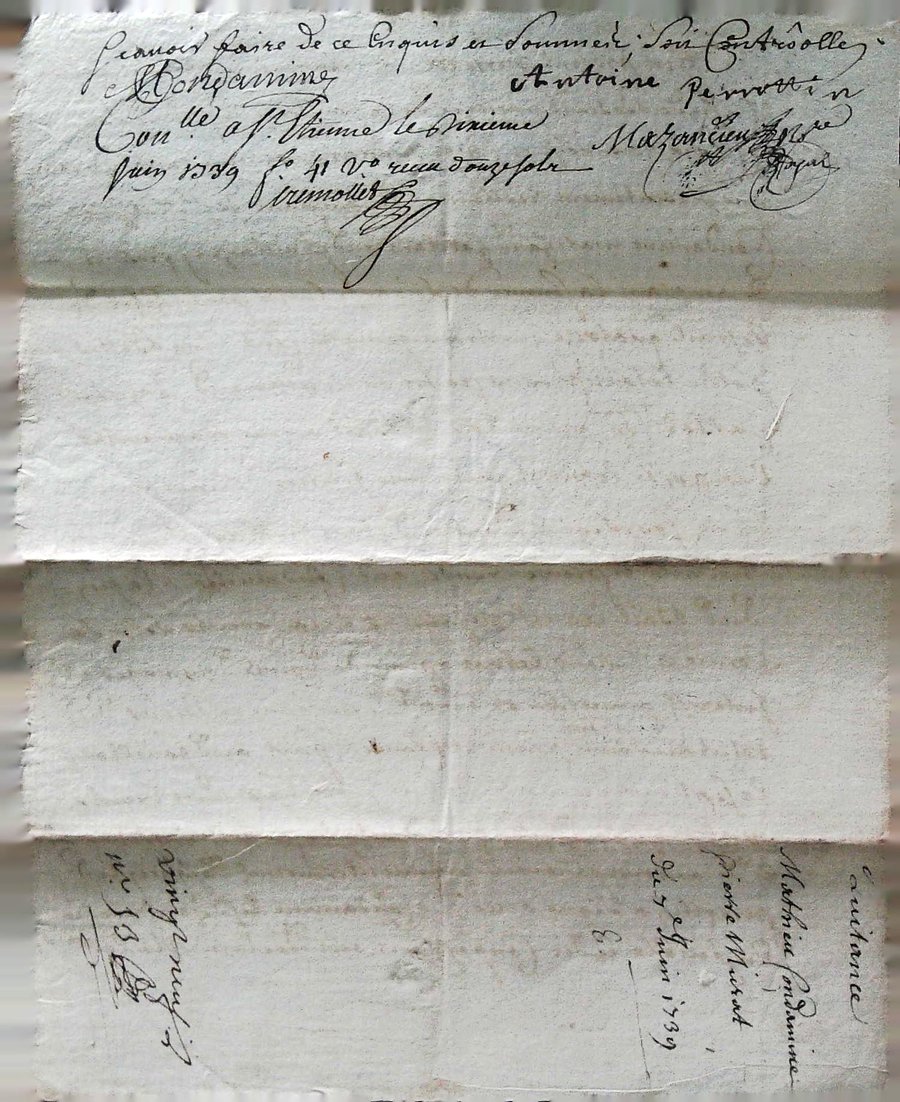 Scavoir faire de ce Enquis et sommés, soit Controollé,
Condamine Antoine Perrottin
Con.lle a St. Etienne le dixieme Mazancieu Nre
Juin 1739 fo 41 Vo recu douze sols Royal
Quitance
Mathieu Condamine
pierre Murat
du 7e Juin 1739
E
vingt neuf